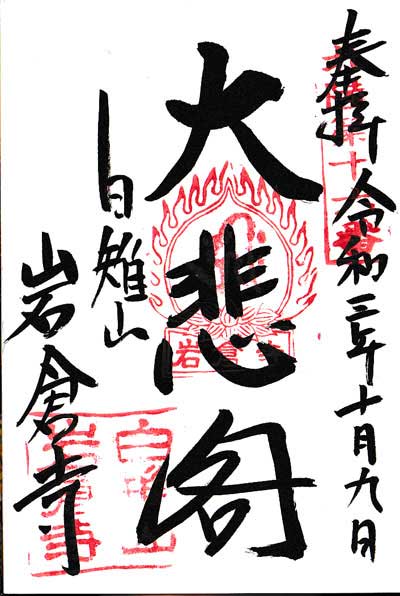 奉拝 令和三年十月九日
大悲閣
白雉山
岩倉寺
岩倉寺
白雉山
岩倉寺